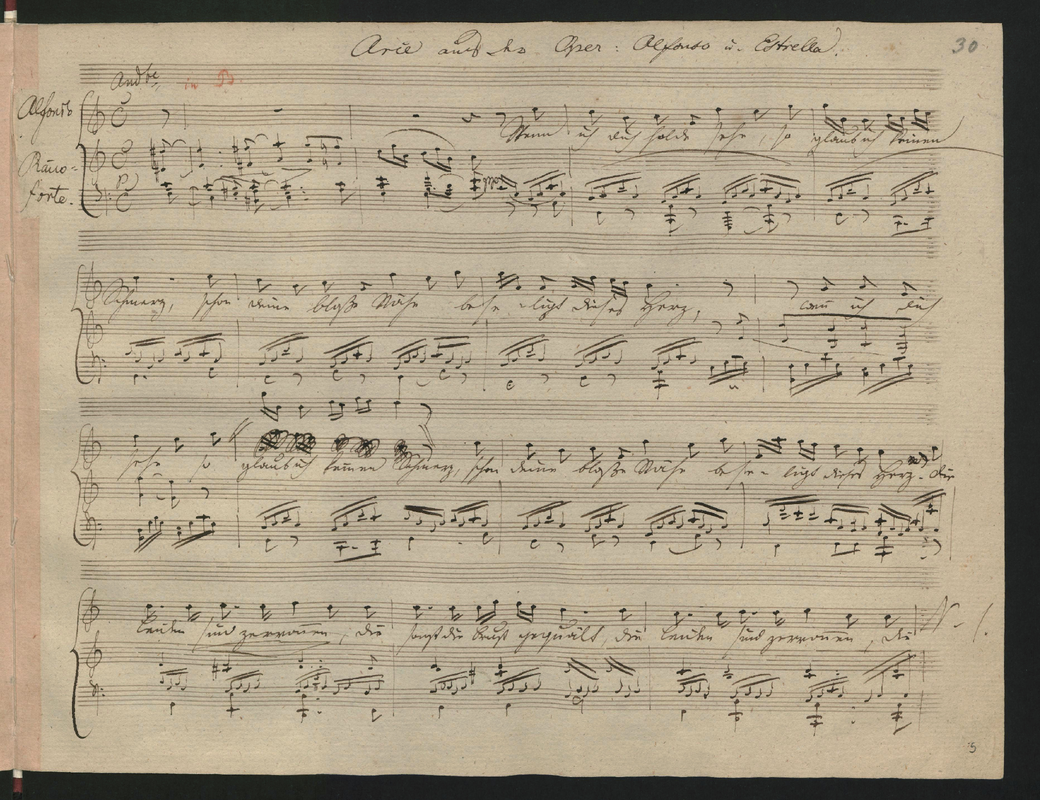 Arie aus der Oper: Alfonso u. Estrella.
30
Andte in B.
Alfonso
Piano-
forte.
p
pp
Wenn ich dich holde sehe, so glaub ich keinen
Schmerz, schon deine bloße Nähe beseligt dieses Herz, wenn ich dich
sehe so glaub ich keinen Schmerz, schon deine bloße Nähe beseligt dieses Herz. Die
Leiden sind zerronnen, die sonst die Brust gequält, die Leiden sind zerronnen, die
3